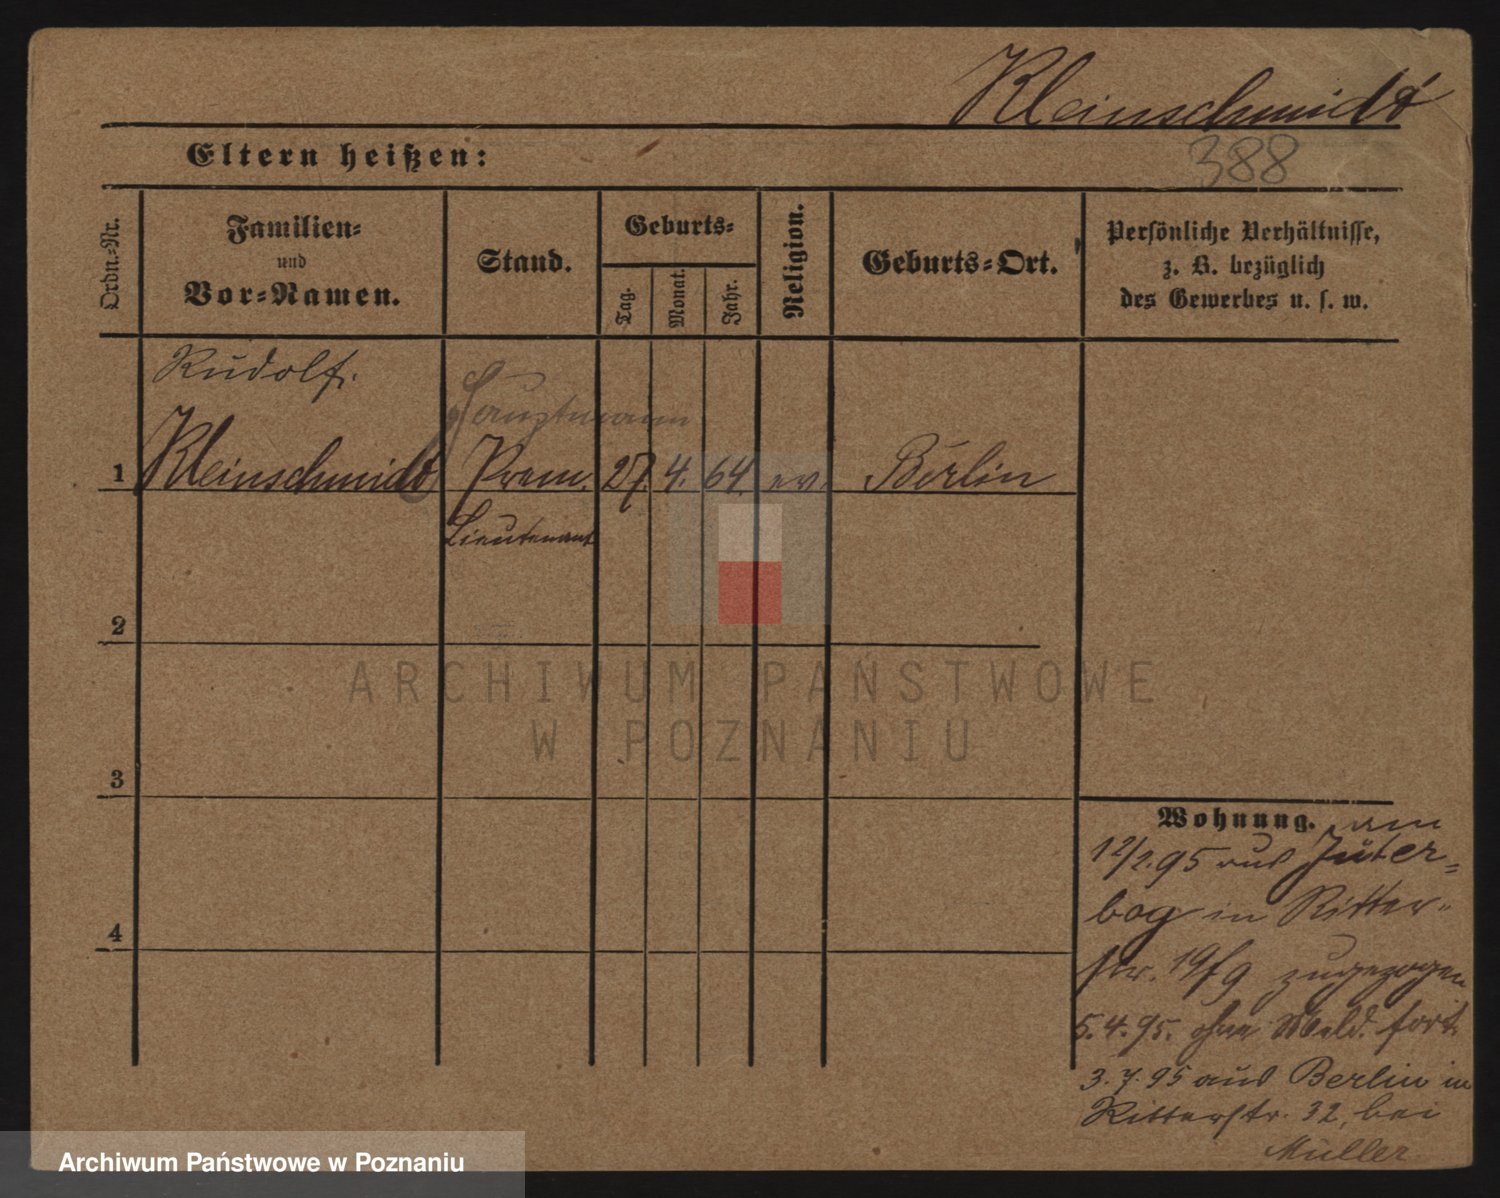 Kleinschmidt
Eltern heißen:
388
Ordn.-Nr.
Familien-
und
Vor-Namen.
Stand.
Geburts-
Tag.
Monat.
Jahr.
Religion.
Geburts-Ort.
Persönliche Verhältnisse,
z. B. bezüglich
des Gewerbes u. s. w.
Rudolf.
Hauptmann
1 Kleinschmidt Prem. 27. 4. 64. ev. Berlin
Lieutenant
2
ARCHIWUM PAŃSTWOWE
W POZNANIU
3
Wohnung. am
12/2.95 aus Jüter-
4
bog in Ritter-
str. 19/9 zugezogen
5.4.95. ohne Meld. fort.
3.7.95 aus Berlin in
Ritterstr. 32, bei
Müller
Archiwum Państwowe w Poznaniu